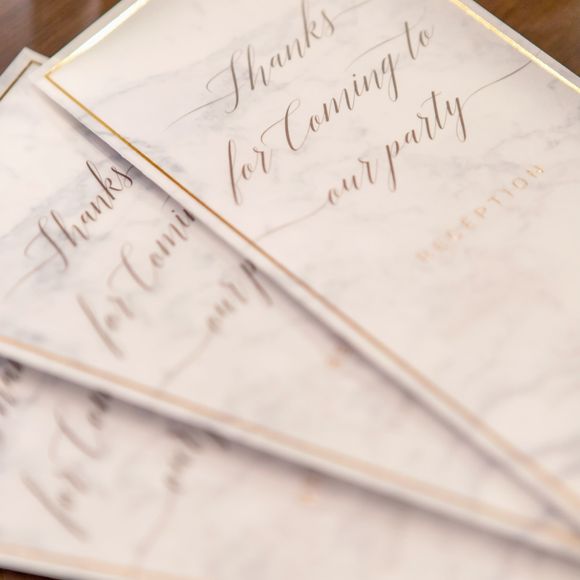 Thanks
for Coming to
our party
RECEPTION
Thanks
for Coming
our p
for Co
ou